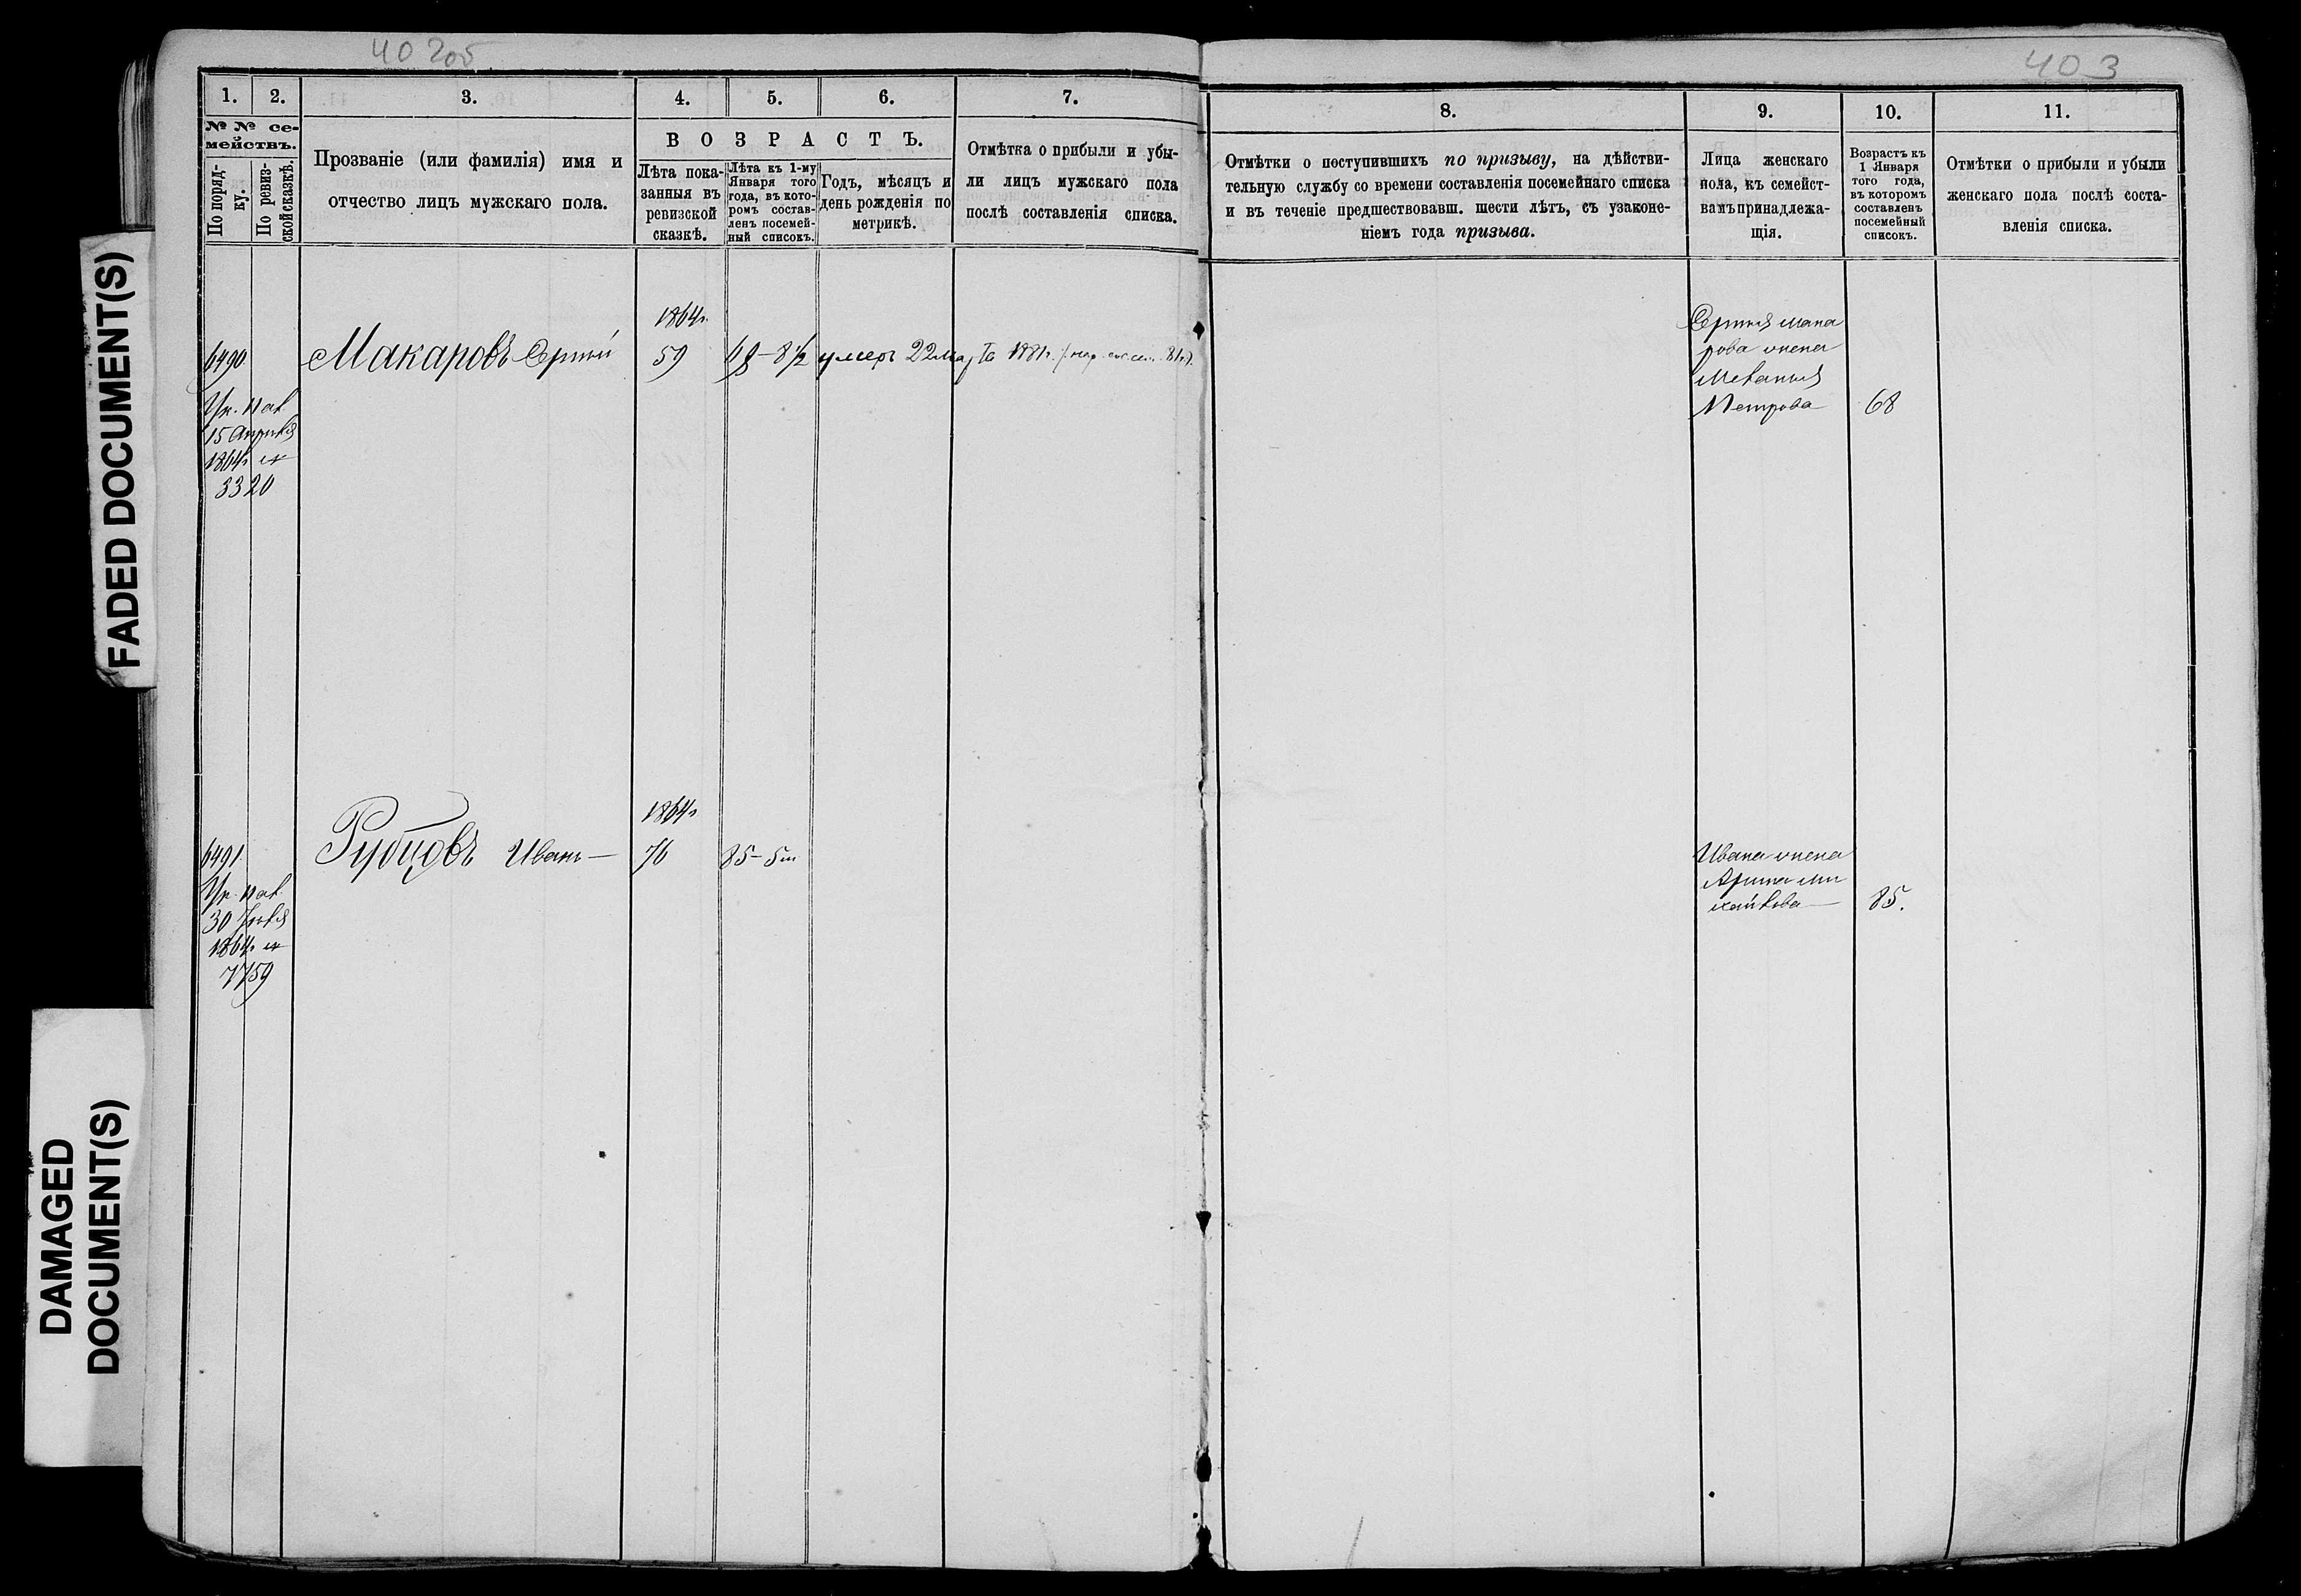 40 2об
403
1.
2.
3.
4.
5.
6.
7.
8.
9.
10.
11.
№ № се-
мействъ.
По поряд-
ку.
По ревиз-
ской сказкѣ.
Прозваніе (или фамилія) имя и
отчество лицъ мужскаго пола.
ВОЗРАСТЪ.
Лѣта пока-
занныя въ
ревизской
сказкѣ.
Лѣта къ 1-му
Января того
года, въ кото-
ромъ состав-
ленъ посемей-
ный списокъ.
Годъ, мѣсяцъ и
день рожденія по
метрикѣ.
Отмѣтка о прибыли и убы-
ли лицъ мужскаго пола
послѣ составленія списка.
Отмѣтки о поступившихъ по призыву, на дѣйстви-
тельную службу со времени составленія посемейнаго списка
и въ теченіе предшествовавш. шести лѣтъ, съ узаконе-
ніемъ года призыва.
Лица женскаго
пола, къ семейст-
вамъ принадлежа-
щія.
Возрастъ къ
1 Января
того года,
въ которомъ
составленъ
посемейный
списокъ.
Отмѣтки о прибыли и убыли
женскаго пола послѣ соста-
вленія списка.
1864г.
6490
Макаровъ Сергѣй
59
68-8½
умеръ 22 марта 1881г.
Ук. Пал.
15 Апрѣля
1864г №
3320
Сергѣя Мака
рова жена
Меланья
Петрова
68
1864г
6491
Рубцовъ Иванъ —
76
85-5м
Ук. Пал.
1864г №
7759
Ивана жена
Арина Ми
хайлова —
85.
FADED DOCUMENT(S)
DAMAGED
DOCUMENT(S)